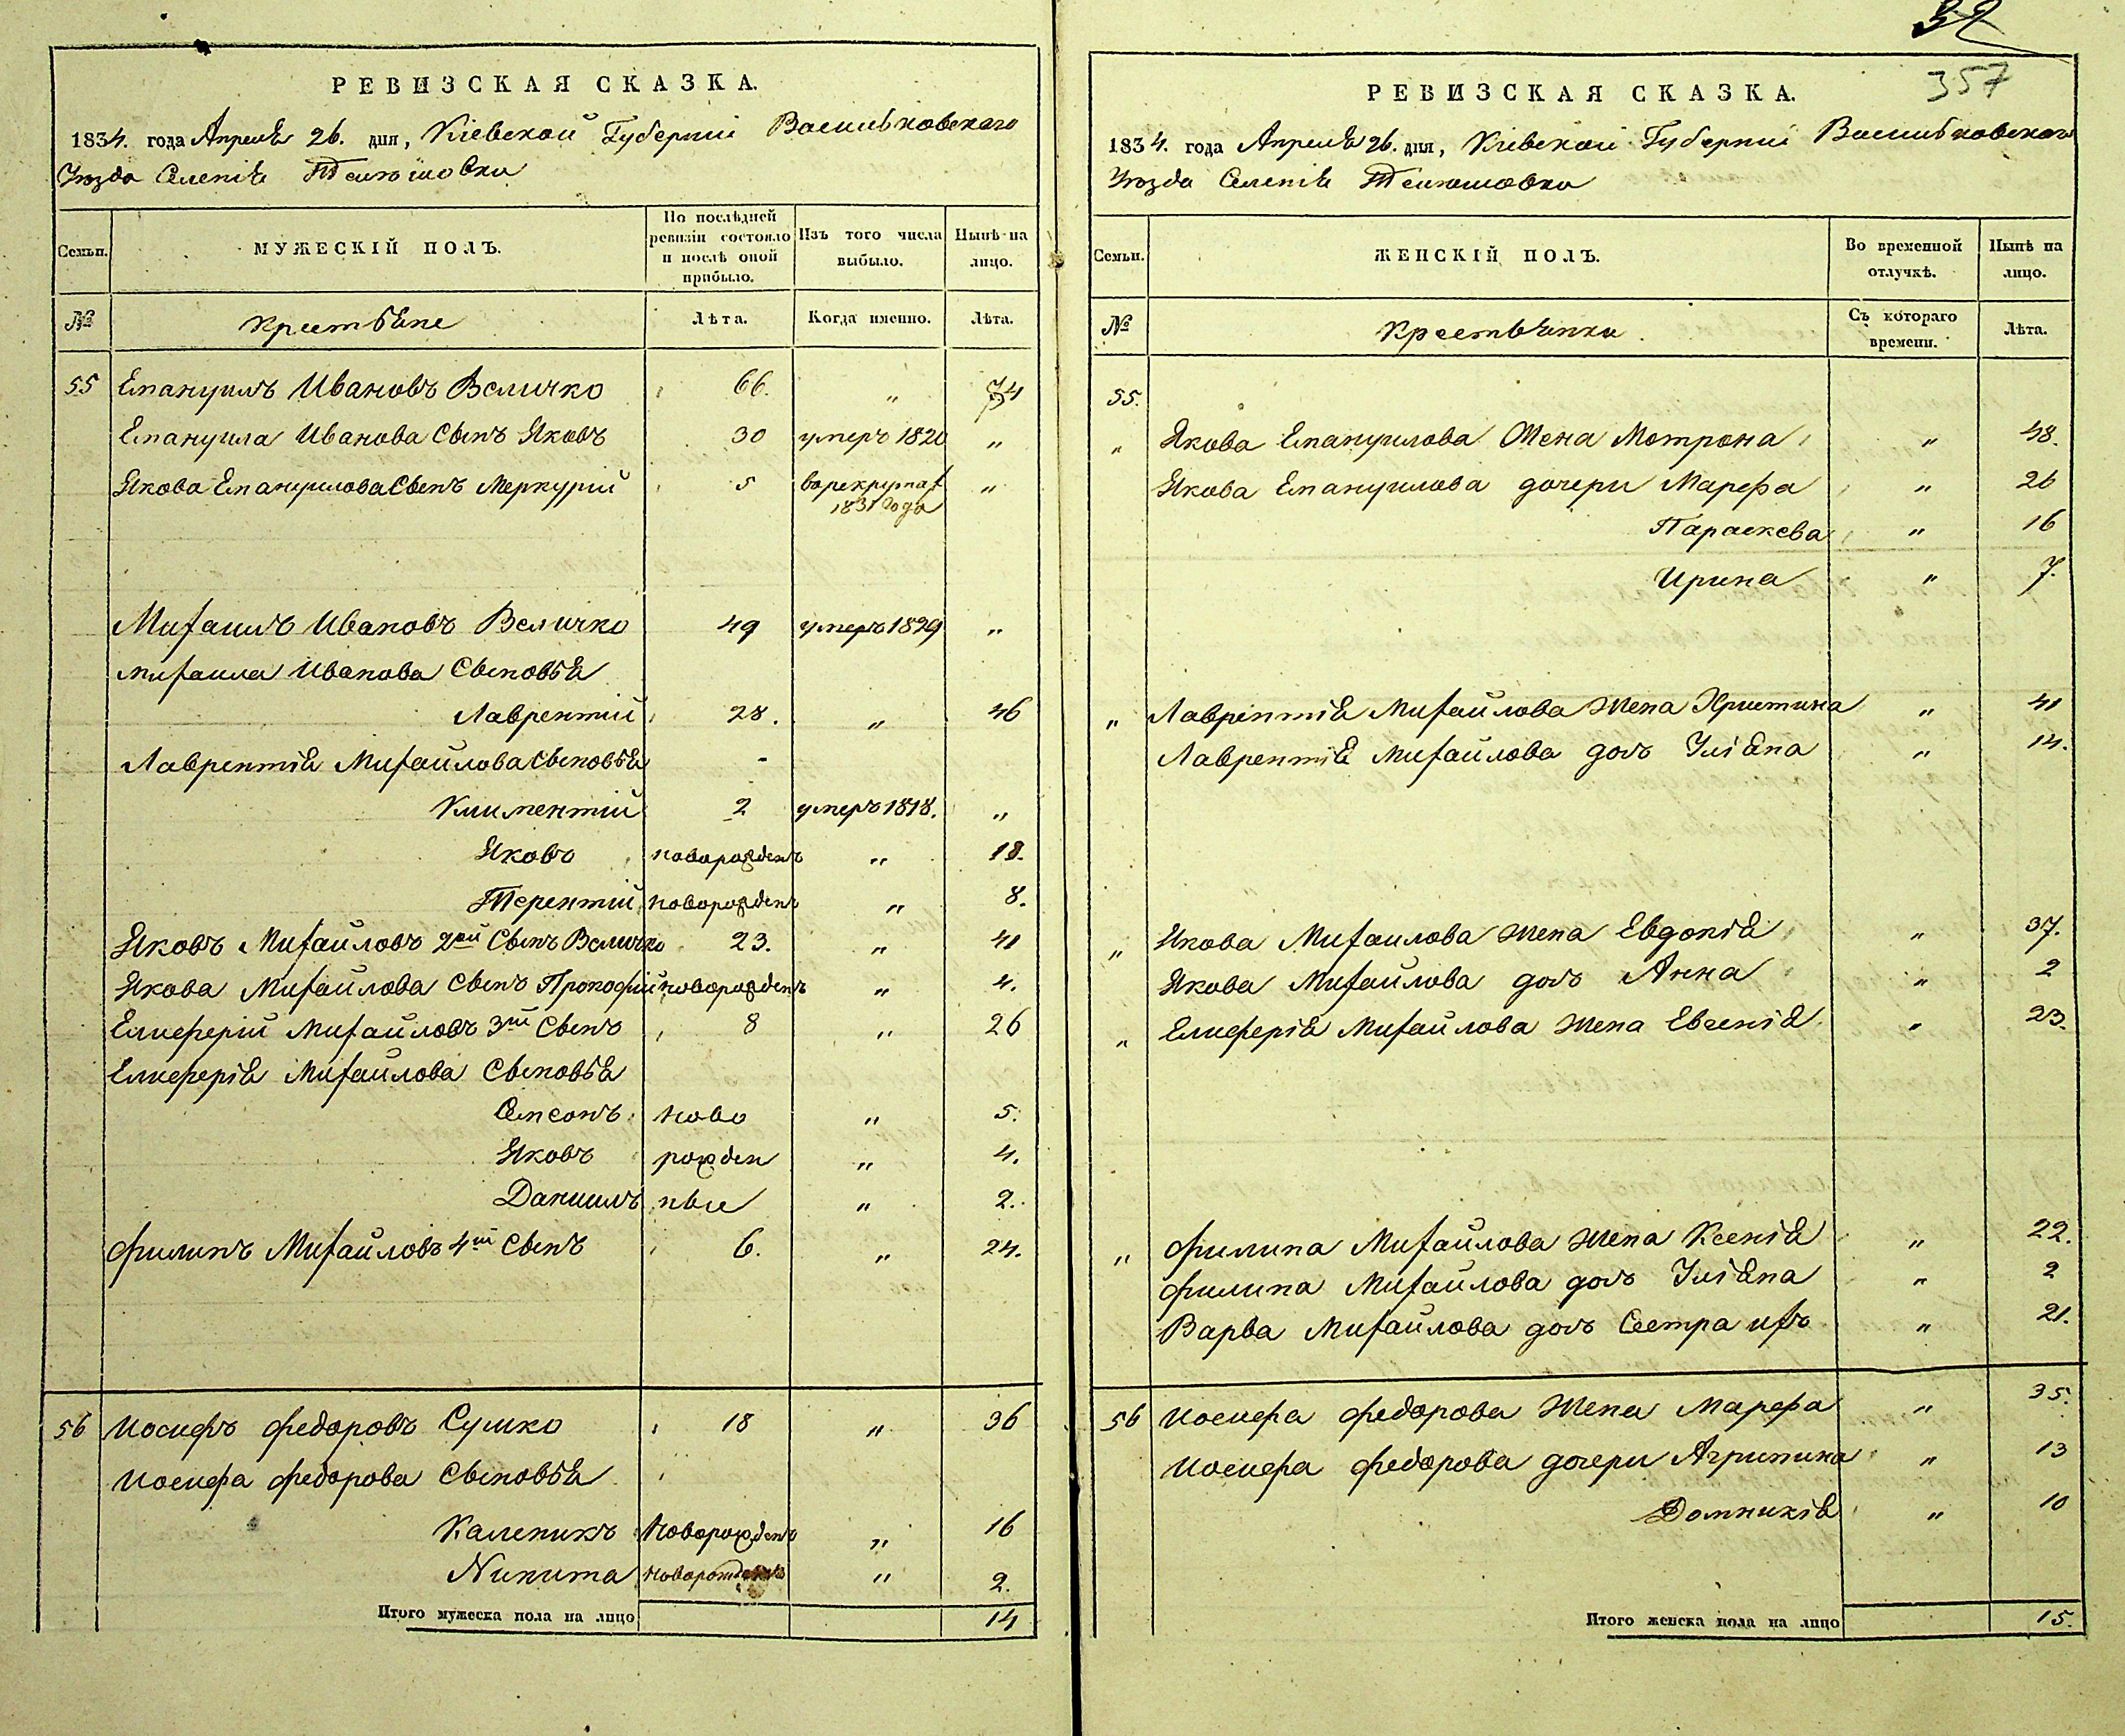 РЕВИЗСКАЯ СКАЗКА.
1834. года Апреля 26. дня, Кіевской Губерніи Васильковского
Уезда Селенія Телешовки
Семьи.
МУЖЕСКІЙ ПОЛЪ.
По послѣдней ревизіи состояло и послѣ оной прибыло.
Изъ того числа выбыло.
Нынѣ на лицо.
№ Крестьяне Лѣта. Когда именно. Лѣта.
55 Емануилъ Ивановъ Величко 66. „ 74
Емануила Иванова Сынъ Яковъ 30 умеръ 1820 „
Якова Емануилова Сынъ Меркурій 5 „
1831 года
Михаилъ Ивановъ Величко 49 умеръ 1829 „
Михаила Иванова Сыновья
Лаврентій 28. „ 46
Лаврентія Михайлова Сыновья -
Климентій 2 умеръ 1818. „
Яковъ новорожденъ „ 18.
Терентій новорожденъ „ 8.
Яковъ Михайловъ 2ой Сынъ Величко 23. „ 41
Якова Михайлова Сынъ Прокофій новорожденъ „ 4.
Елиферій Михайловъ 3ій Сынъ 8 „ 26
Елиферія Михайлова Сыновья
Самсонъ ново „ 5.
Яковъ рожден „ 4.
Даниилъ ные „ 2.
Филипъ Михайловъ 4ій Сынъ 6. „ 24.
56 Иосифъ Федоровъ Сушко 18 „ 36
Иосифа Федорова Сыновья
Каленикъ Новорожденъ „ 16
Никита новорожденъ „ 2.
Итого мужеска пола на лицо 14
32
357
РЕВИЗСКАЯ СКАЗКА.
1834. года Апреля 26. дня, Кіевской Губерніи Васильковского
Уезда Селенія Телешовки
Семьи.
ЖЕНСКІЙ ПОЛЪ.
Во временной отлучкѣ.
Нынѣ на лицо.
№ Крестьянки Съ котораго времени. Лѣта.
55.
„ Якова Емануилова Жена Мотрона „ 48.
Якова Емануилова дочери Марфа „ 26
Параскева „ 16
Ирина „ 7.
„ Лаврентія Михайлова Жена Христина „ 41
Лаврентія Михайлова дочь Улiяна „ 14.
„ Якова Михайлова Жена Евдокія „ 37.
Якова Михайлова дочь Анна „ 2
„ Елиферія Михайлова Жена Евгенія „ 23.
„ Филипа Михайлова Жена Ксенія „ 22.
Филипа Михайлова дочь Улiяна „ 2
Варва Михайлова дочь Сестра ихъ „ 21.
56 Иосифа Федорова Жена Марфа „ 35.
Иосифа Федорова дочери Агрипина „ 13
Домникія „ 10
Итого женска пола на лицо 15.